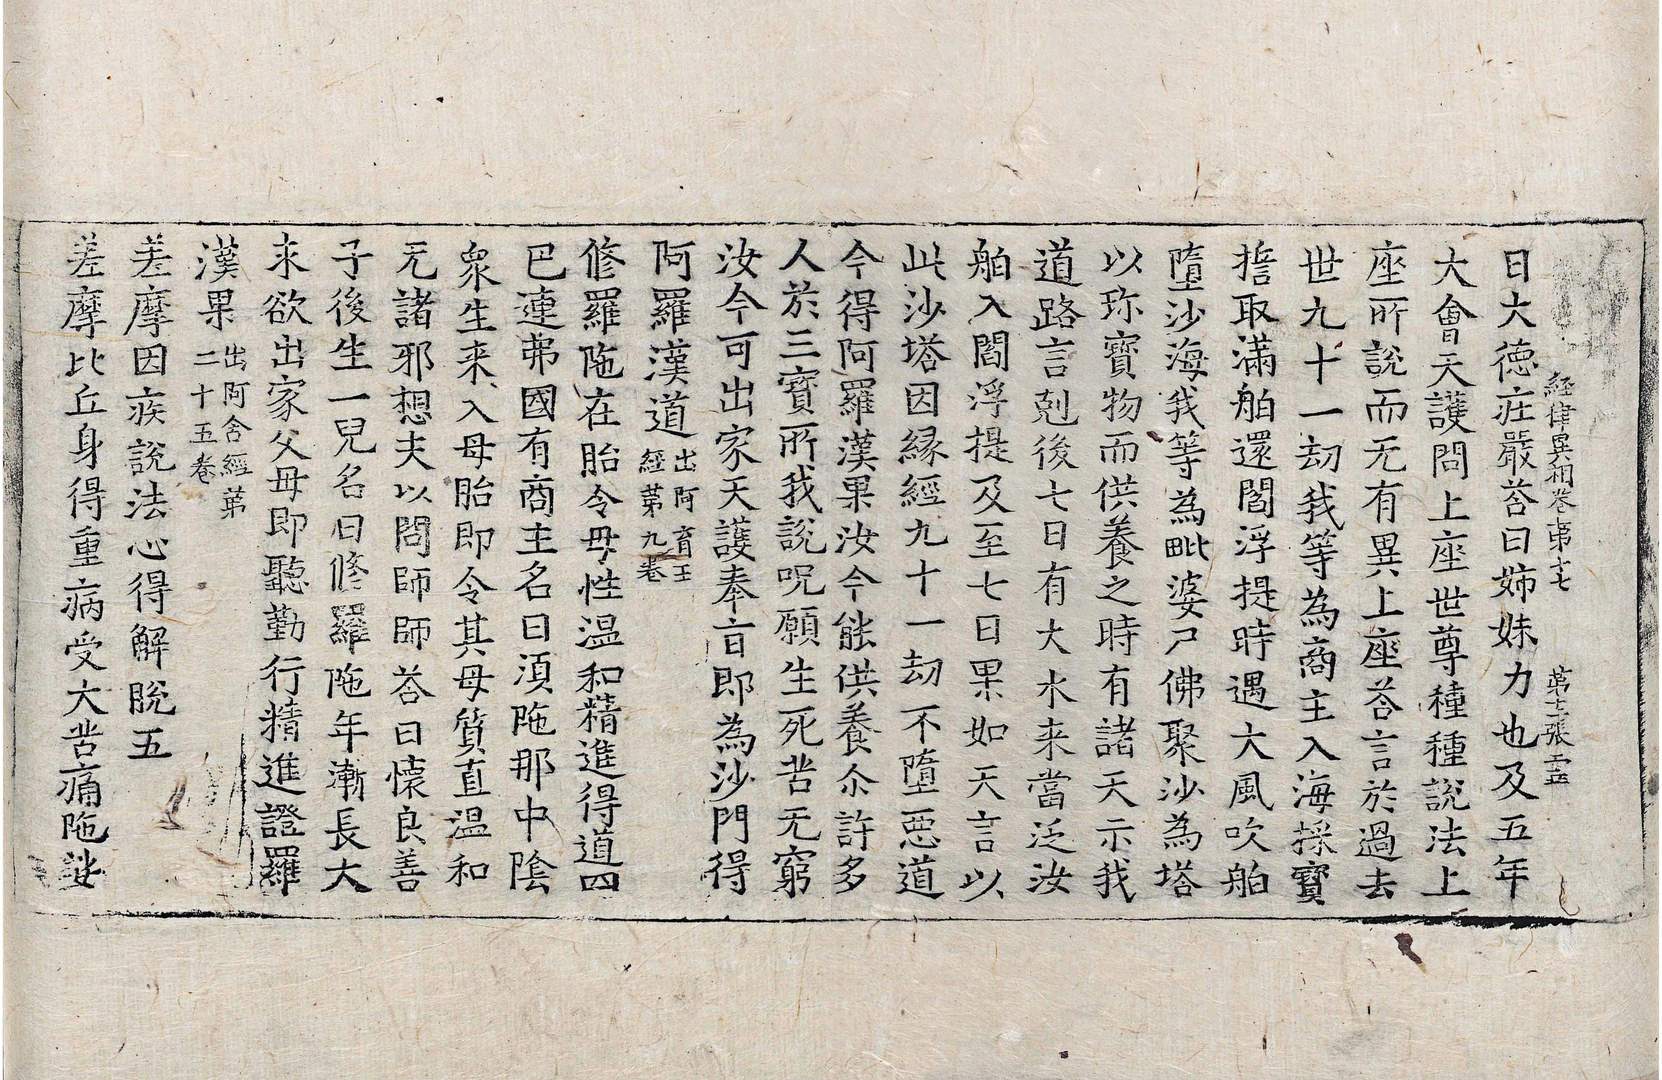 經律異相卷苐十七 苐十二張 靈
日大德疘嚴荅曰姊妹力也及五年
大會天護問上座世尊種種說法上
座所說而无有異上座荅言於過去
世九十一刧我等為商主入海採寶
捨取滿舶還閻浮提時遇大風吹舶
墮沙海我等為毗婆尸佛聚沙為塔
以珎寶物而供養之時有諸天示我
道路言剋後七日有大水来當泛汝
舶入閻浮提及至七日果如天言以
此沙塔因縁經九十一刧不墮惡道
今得阿羅漢果汝今能供養尒許多
人於三寶所我說呪願生死苦无窮
汝今可出家天護奉言即為沙門得
阿羅漢道 出阿育王經苐九卷
修羅陁在胎令母性溫和精進得道四
巴連弗國有商主名曰湏陁那中陰
衆生来入母胎即令其母質直溫和
无諸邪想夫以問師師荅曰懷良善
子後生一兒名曰修羅陁年漸長大
求欲出家父母即聽勤行精進證羅
漢果 出阿含經苐二十五卷
差摩因疾說法心得解脫五
差摩比丘身得重病受大苦痛陁娑